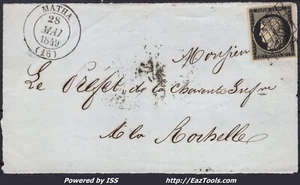 MATHA
28
MAI
1849
(16)
Monsieur
Le Préfet de la Charente Infre
A la Rochelle
Powered by ISS
http://EazTools.com